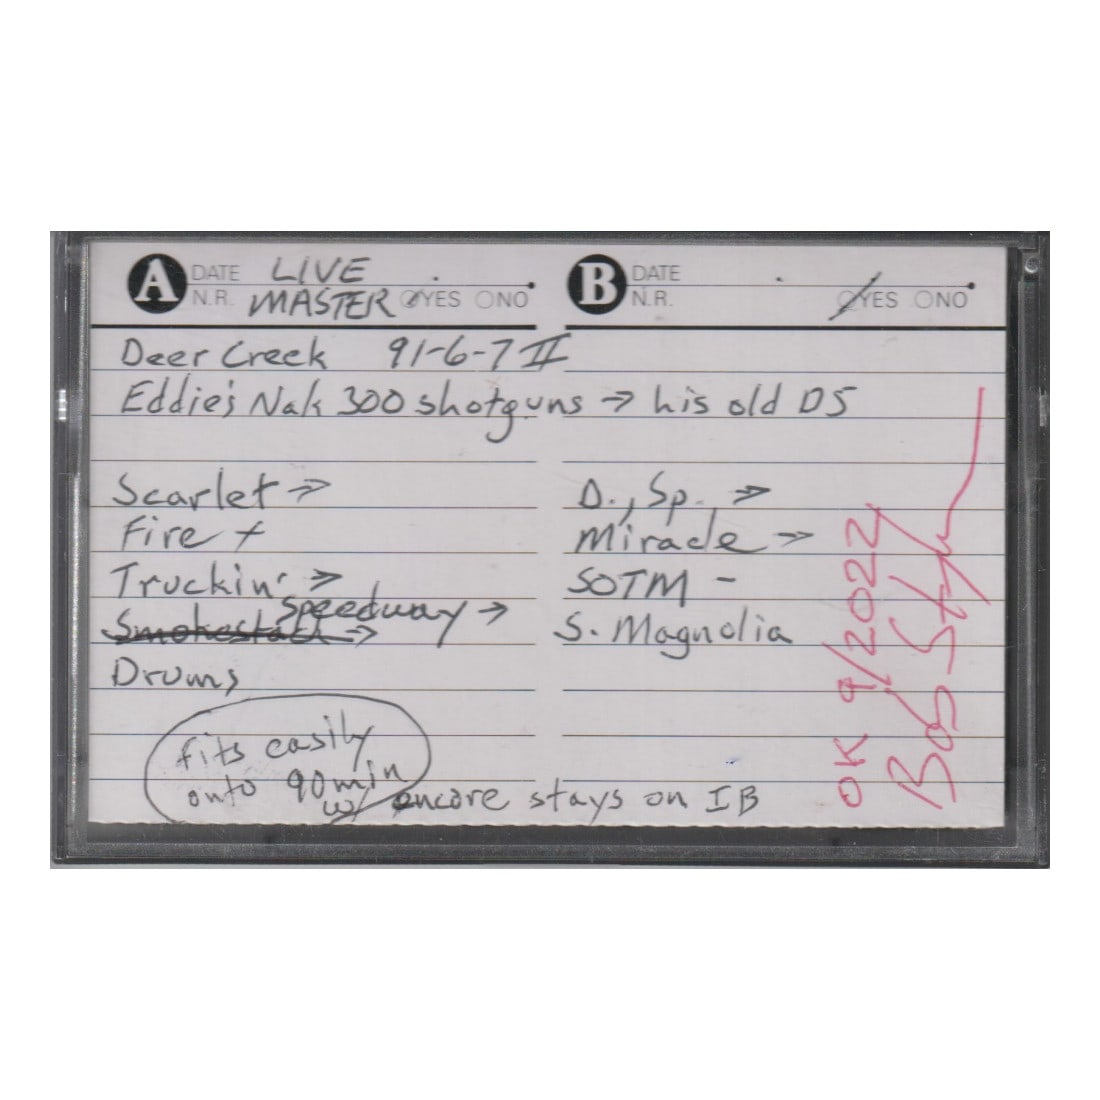 A DATE LIVE
N.R. MASTER YES NO
B DATE
N.R. YES NO
Deer Creek 91-6-7 II
Eddie's Nak 300 shotguns → his old D5
Scarlet →
Fire +
Truckin' →
Speedway →
Smokestack →
Drums
fits easily
onto 90 min
w/ encore stays on IB
D., Sp. →
Miracle →
SOTM -
S. Magnolia
OK 9/2022